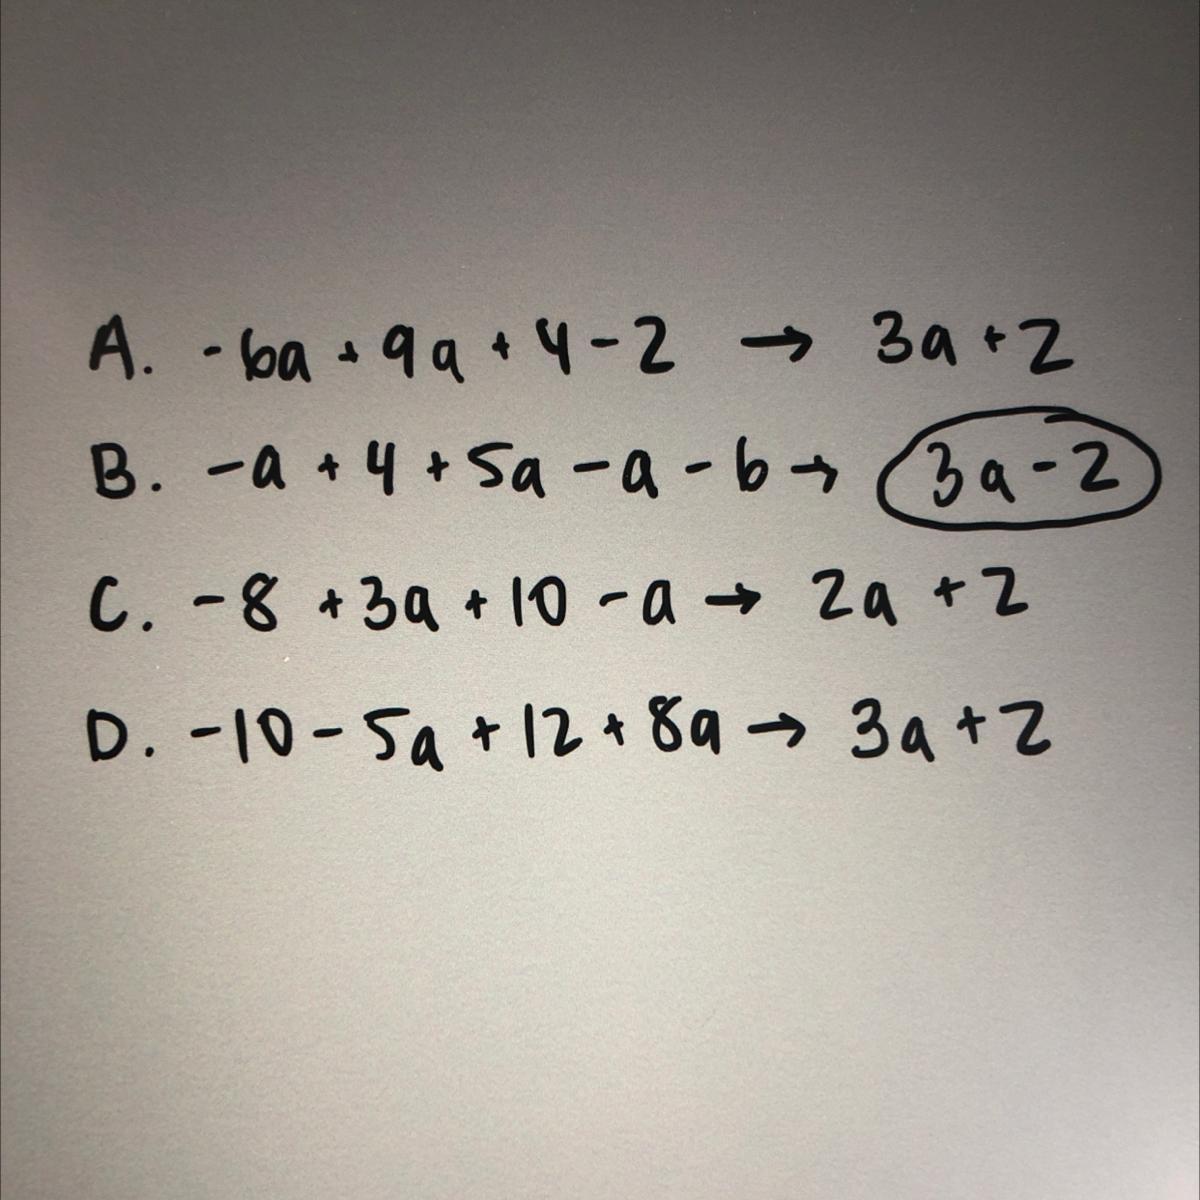 A. -6a + 9a + 4 - 2 → 3a + 2
B. -a + 4 + 5a - a - 6 → 3a - 2
C. -8 + 3a + 10 - a → 2a + 2
D. -10 - 5a + 12 + 8a → 3a + 2